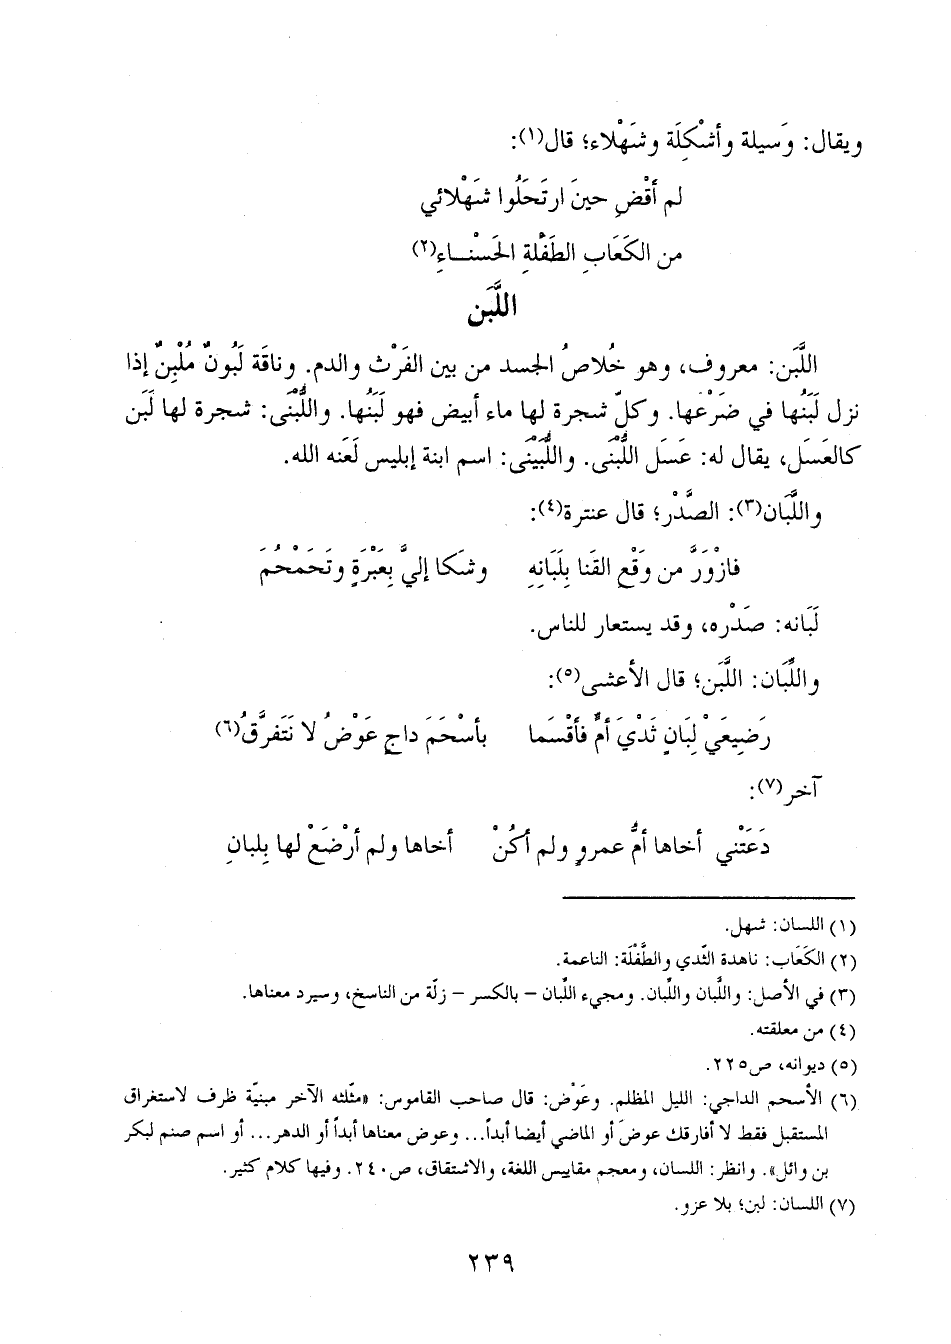 ويقال: وَسيلة وأشْكِلَة وشَهْلاء؛ قال(١):
لم أَقْضِ حينَ ارتَحَلُوا شَهْلائي
من الكَعَابِ الطَفْلةِ الحَسْنـــاءِ(٢)
اللَّبَن
اللَّبَن: معروف، وهو خُلاصُ الجسد من بين الفَرْث والدم. وناقَة لَبُونٌ مُلْبِنٌ إذا
نزل لَبَنُها في ضَرْعها. وكلّ شجرة لها ماء أبيض فهو لَبَنُها. واللُّبْنَى: شجرة لها لَبَن
كالعَسَل، يقال له: عَسَل اللُّبْنَى. واللُّبَيْنَى: اسم ابنة إبليس لَعَنه الله.
واللَّبَان(٣): الصَّدْر؛ قال عنترة(٤):
فازْوَرَّ من وَقْعِ القنا بِلَبَانِهِ وشَكا إليَّ بِعَبْرَةٍ وتَحَمْحُمَ
لَبَانه: صَدْره، وقد يستعار للناس.
واللِّبَان: اللَّبَن؛ قال الأعشى(٥):
رَضِيعَيْ لِبَانٍ ثَدْيَ أمٍّ فأقْسَما بأسْحَمَ داجٍ عَوْضُ لا نَتَفرَّقُ(٦)
آخر(٧):
دَعَتْني أخاها أمُّ عمروٍ ولم أكُنْ أخاها ولم أرْضَعْ لها بِلبانِ
(١) اللسان: شهل.
(٢) الكَعَاب: ناهدة الثّدي والطَّفْلَة: الناعمة.
(٣) في الأصل: واللَّبان واللِّبان. ومجيء اللِّبان – بالكسر – زلّة من الناسخ، وسيرد معناها.
(٤) من معلقته.
(٥) ديوانه، ص٢٢٥.
(٦) الأسحم الداجي: الليل المظلم. وعَوْض: قال صاحب القاموس: «مثلّثه الآخر مبنيّة ظرف لاستغراق
المستقبل فقط لا أفارقك عوضَ أو الماضي أيضا أبداً... وعوض معناها أبداً أو الدهر... أو اسم صنم لبكر
بن وائل». وانظر: اللسان، ومعجم مقاييس اللغة، والاشتقاق، ص٢٤٠. وفيها كلام كثير.
(٧) اللسان: لبن؛ بلا عزو.
٢٣٩